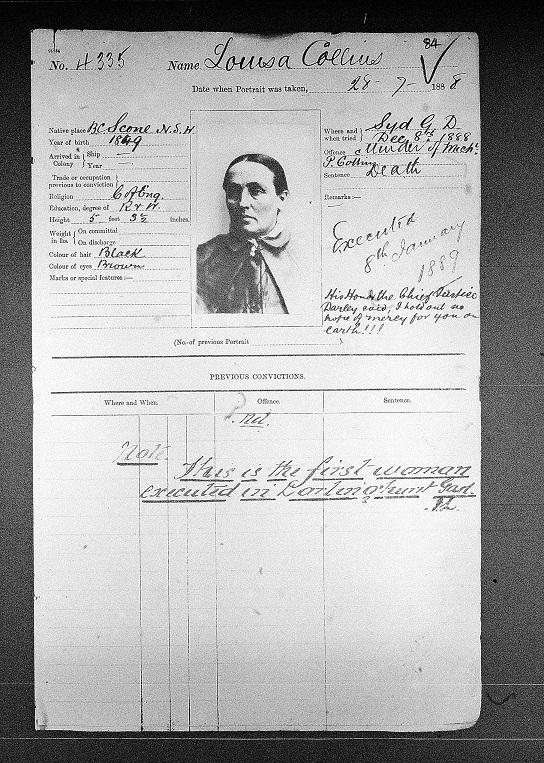 84
No. 4335 Name Louisa Collins
Date when Portrait was taken, 28-7-1888
Native place BC Scone N.S.W.
Year of birth 1849
Arrived in Colony } Ship —
Year —
Trade or occupation previous to conviction }
Religion C of Eng.
Education, degree of R & W.
Height 5 feet 3½ inches.
Weight in lbs. { On committal
On discharge
Colour of hair Black
Colour of eyes Brown
Marks or special features:—
Where and when tried } Syd G. D.
Dec 8th 1888
Offence Murder of Michl.
P. Collins
Sentence Death
Remarks:—
Executed
8th January
1889
His Honor the Chief Justice
Darley said, I hold out no
hope of mercy for you on
earth!!!
(No. of previous Portrait )
PREVIOUS CONVICTIONS.
Where and When. Offence. Sentence.
Nil.
Note
This is the first woman
executed in Darlinghurst Gaol.